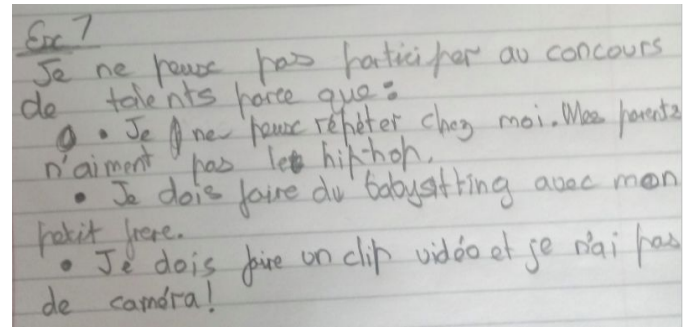 Exc 7
Je ne peux pas participer au concours
de talents parce que:
• Je ne peux répéter chez moi. Mes parents
n'aiment pas le hip-hop.
• Je dois faire du babysitting avec mon
petit frere.
• Je dois faire un clip vidéo et je n'ai pas
de caméra!